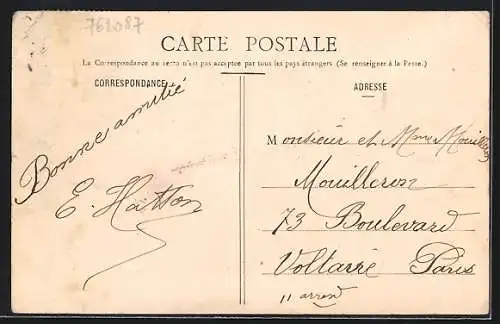 761087
CARTE POSTALE
La Correspondance au recto n'est pas acceptée par tous les pays étrangers (Se renseigner à la Poste.)
CORRESPONDANCE
Bonne amitié
E. Hatton
ADRESSE
Monsieur et Mme Mouilleron
Mouilleron
73 Boulevard
Voltaire Paris
11 arrond